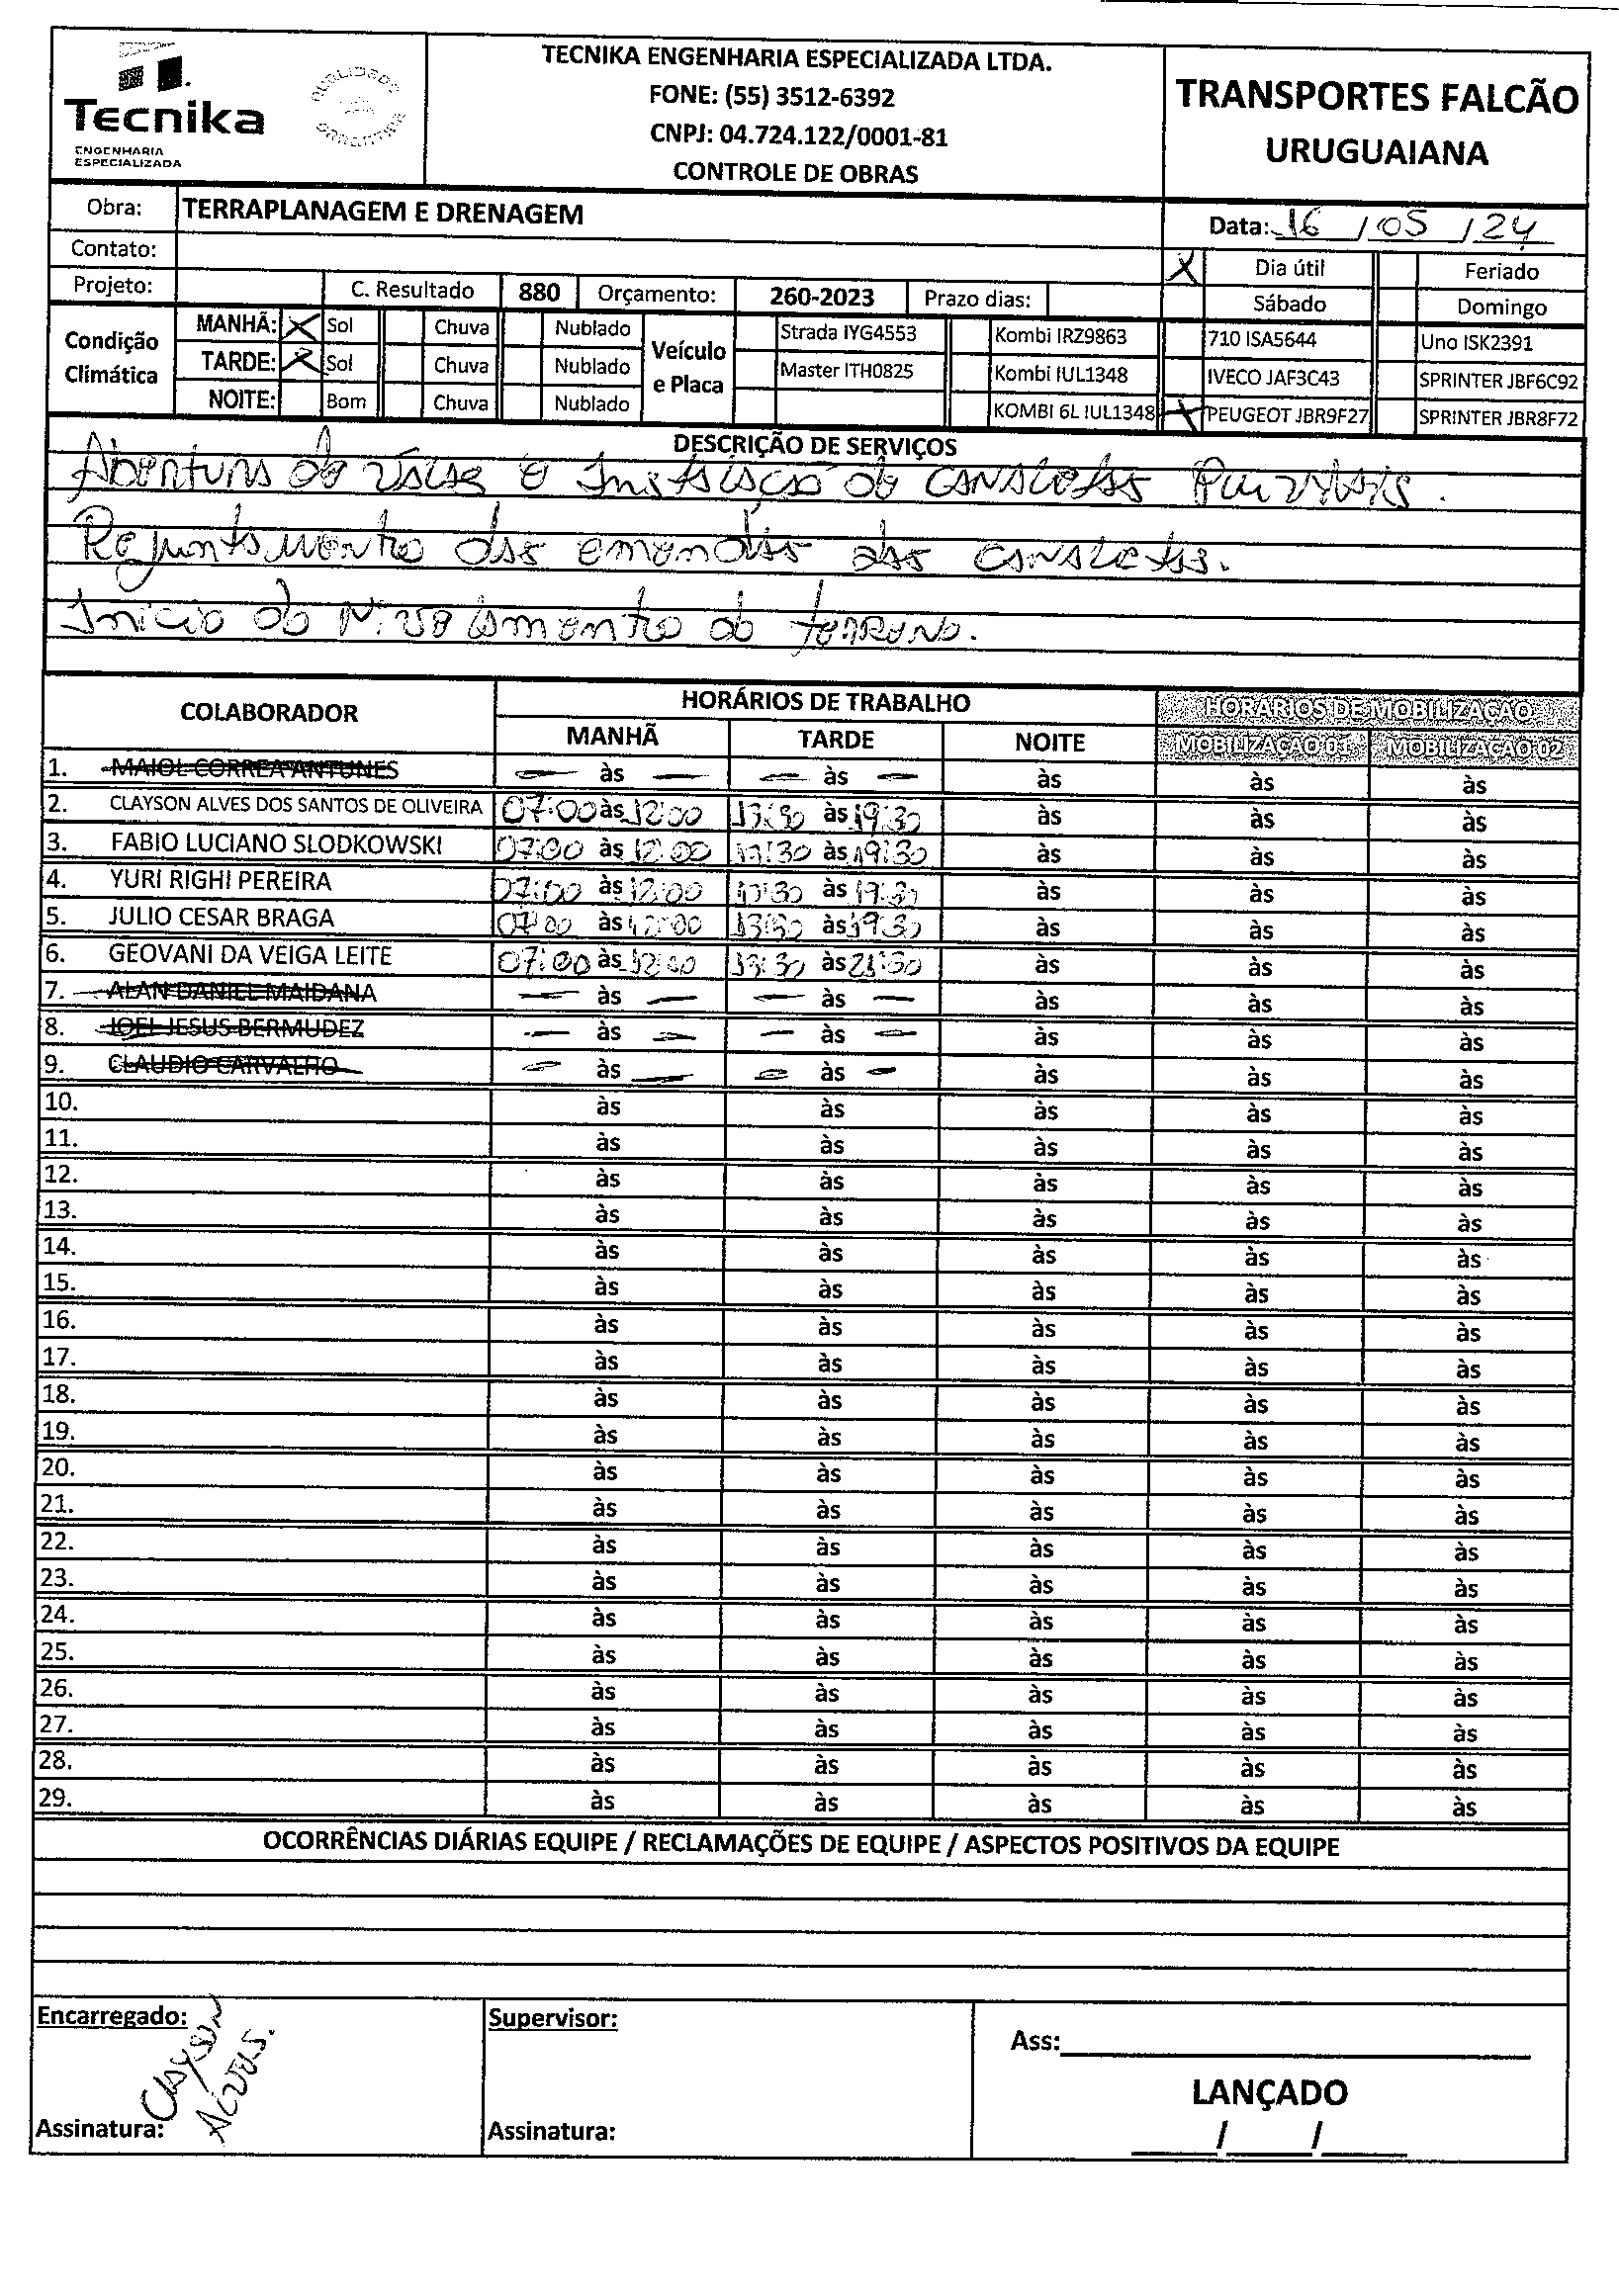 Tecnika
ENGENHARIA
ESPECIALIZADA
TECNIKA ENGENHARIA ESPECIALIZADA LTDA.
FONE: (55) 3512-6392
CNPJ: 04.724.122/0001-81
CONTROLE DE OBRAS
TRANSPORTES FALCÃO
URUGUAIANA
Obra: TERRAPLANAGEM E DRENAGEM
Data: 16 / 05 / 24
Contato:
X Dia útil Feriado
Projeto: C. Resultado 880 Orçamento: 260-2023 Prazo dias:
Sábado Domingo
Condição Climática
MANHÃ: X Sol Chuva Nublado
TARDE: X Sol Chuva Nublado
NOITE: Bom Chuva Nublado
Veículo e Placa
Strada IYG4553 Kombi IRZ9863 710 ISA5644 Uno ISK2391
Master ITH0825 Kombi IUL1348 IVECO JAF3C43 SPRINTER JBF6C92
KOMBI 6L IUL1348 X PEUGEOT JBR9F27 SPRINTER JBR8F72
DESCRIÇÃO DE SERVIÇOS
Abertura de valas e Instalação de canaletas Pluviais.
Rejuntamento das emendas das canaletas.
Inicio do Nivelamento do terreno.
COLABORADOR HORÁRIOS DE TRABALHO HORÁRIOS DE MOBILIZAÇÃO
MANHÃ TARDE NOITE MOBILIZAÇÃO 01 MOBILIZAÇÃO 02
1. MAIOL CORREA ANTUNES — às — — às — às às às
2. CLAYSON ALVES DOS SANTOS DE OLIVEIRA 07:00 às 12:00 13:30 às 19:30 às às às
3. FABIO LUCIANO SLODKOWSKI 07:00 às 12:00 13:30 às 19:30 às às às
4. YURI RIGHI PEREIRA 07:00 às 12:00 13:30 às 19:30 às às às
5. JULIO CESAR BRAGA 07:00 às 12:00 13:30 às 19:30 às às às
6. GEOVANI DA VEIGA LEITE 07:00 às 12:00 13:30 às 21:30 às às às
7. ALAN DANIEL MAIDANA — às — — às — às às às
8. JOEL JESUS BERMUDEZ — às — — às — às às às
9. CLAUDIO CARVALHO — às — — às — às às às
10. às às às às às
11. às às às às às
12. às às às às às
13. às às às às às
14. às às às às às
15. às às às às às
16. às às às às às
17. às às às às às
18. às às às às às
19. às às às às às
20. às às às às às
21. às às às às às
22. às às às às às
23. às às às às às
24. às às às às às
25. às às às às às
26. às às às às às
27. às às às às às
28. às às às às às
29. às às às às às
OCORRÊNCIAS DIÁRIAS EQUIPE / RECLAMAÇÕES DE EQUIPE / ASPECTOS POSITIVOS DA EQUIPE
Encarregado: Supervisor:
Clayson
Alves.
Ass:
LANÇADO
Assinatura: Assinatura: / /